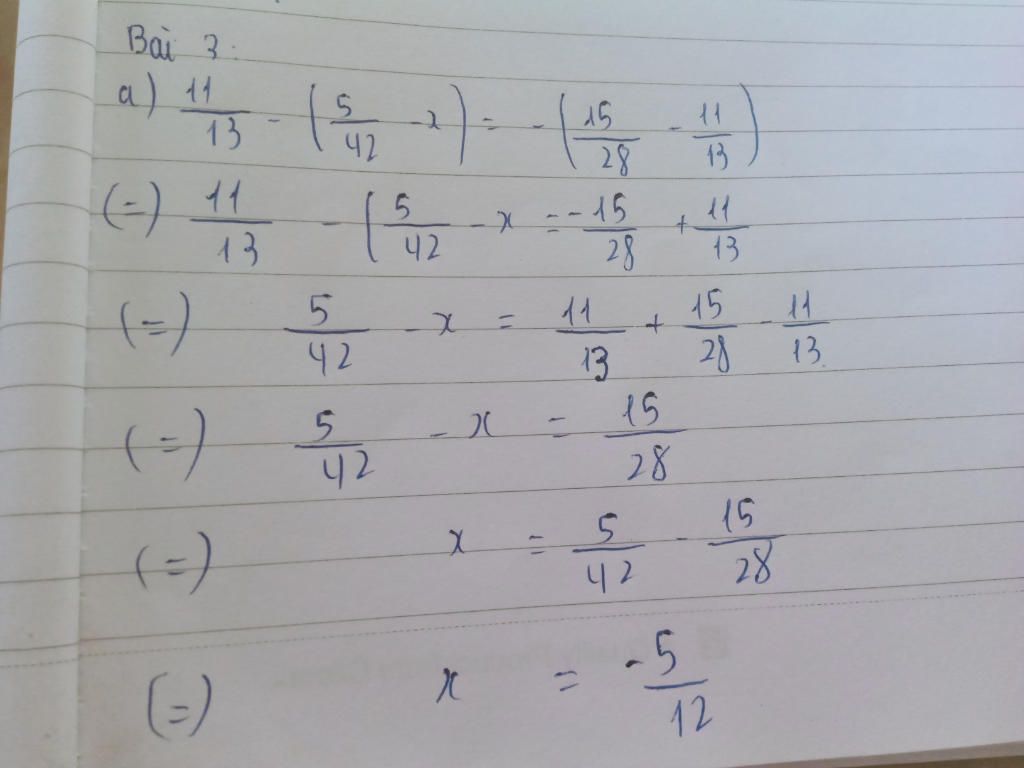 Bài 3:
a) 11/13 - (5/42 - x) = - (15/28 - 11/13)
(=) 11/13 - (5/42 - x = -15/28 + 11/13
(=) 5/42 - x = 11/13 + 15/28 - 11/13
(=) 5/42 - x = 15/28
(=) x = 5/42 - 15/28
(=) x = -5/12